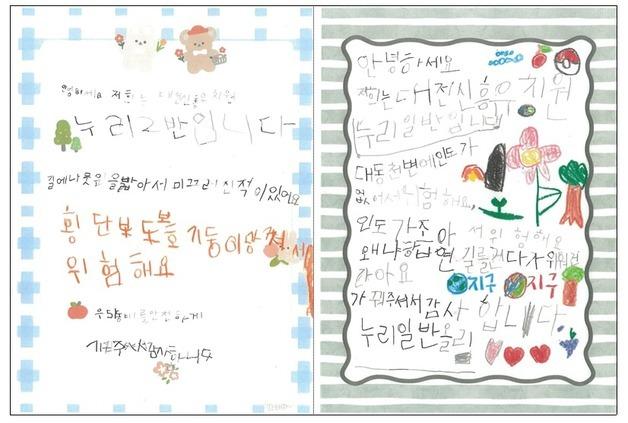 안녕하세요 저희는 대전신흥유치원
누리2반입니다
길에 나뭇잎을 밟아서 미끄러진적이있어요
횡단보도볼
기둥이망가져서
위험해요
우리동네를안전하게
가꿔주셔서감사합니다
안녕하세요
저희는대전신흥유치원
누리일반입니다
대동천변에인도가
없어서위험해요,
인도가조아서위험해요
왜냐하면 길을건다가위험
가꿔주셔서감사합니다
지구
지구
누리일반올림